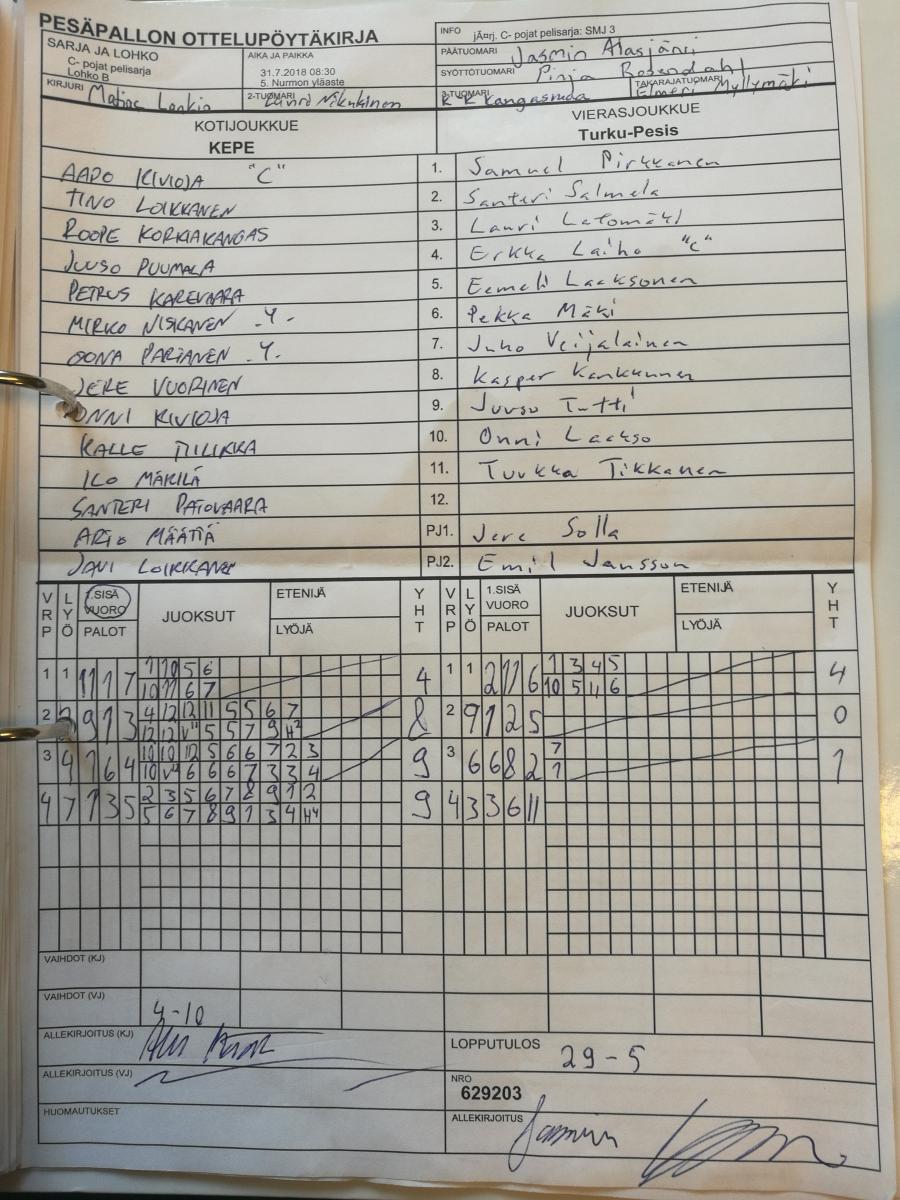 PESÄPALLON OTTELUPÖYTÄKIRJA
INFO jÃ¤rj. C- pojat pelisarja: SMJ 3
SARJA JA LOHKO
C- pojat pelisarja
Lohko B
AIKA JA PAIKKA
31.7.2018 08:30
5. Nurmon yläaste
PÄÄTUOMARI Jasmin Alasjärvi
SYÖTTÖTUOMARI Pinja Rosendahl
KIRJURI
2-TUOMARI Lauri Nikukinen
3-TUOMARI Kangasmaa
TAKARAJATUOMARI Elmeri Myllymäki
KOTIJOUKKUE
KEPE
VIERASJOUKKUE
Turku-Pesis
AAPO KIVIOJA "C" 1. Samuel Pirkkanen
TINO LOIKKANEN 2. Santeri Salmela
ROOPE KORKIAKANGAS 3. Lauri Latomäki
JUUSO PUUMALA 4. Erkka Laiho "C"
PETRUS KAREVAARA 5. Eemeli Laaksonen
MIRKO NISKANEN -Y- 6. Pekka Mäki
OONA PARIANEN -Y- 7. Juho Veijalainen
JERE VUORINEN 8. Kasper Kankkunen
ONNI KIVIOJA 9. Juuso Tutti
KALLE TIILIKKA 10. Onni Laakso
ILO MÄKILÄ 11. Tuukka Tikkanen
SANTERI PATOVAARA 12.
ARTO MÄÄTTÄ PJ1. Jere Solla
JANI LOIKKANEN PJ2. Emil Jansson
VRP LYÖ 1.SISÄ VUORO PALOT JUOKSUT ETENIJÄ LYÖJÄ YHT VRP LYÖ 1.SISÄ VUORO PALOT JUOKSUT ETENIJÄ LYÖJÄ YHT
1 1 11 1 7 1 10 5 6 4 1 1 2 11 6 1 3 4 5 4
10 11 6 7 10 5 11 6
2 9 1 3 4 12 12 11 5 5 6 7 8 2 9 1 2 5 0
12 12 V" 5 5 7 9 H²
3 4 1 6 4 10 10 12 5 6 6 7 2 3 9 3 6 6 8 2 7 1
10 V" 6 6 6 7 3 3 4 1
4 7 1 3 5 2 3 5 6 7 8 9 1 2 9 4 3 3 6 11
5 6 7 8 9 1 3 4 H4
VAIHDOT (KJ)
VAIHDOT (VJ) 4-10
ALLEKIRJOITUS (KJ)
LOPPUTULOS 29-5
ALLEKIRJOITUS (VJ)
NRO
629203
HUOMAUTUKSET
ALLEKIRJOITUS Jasmin